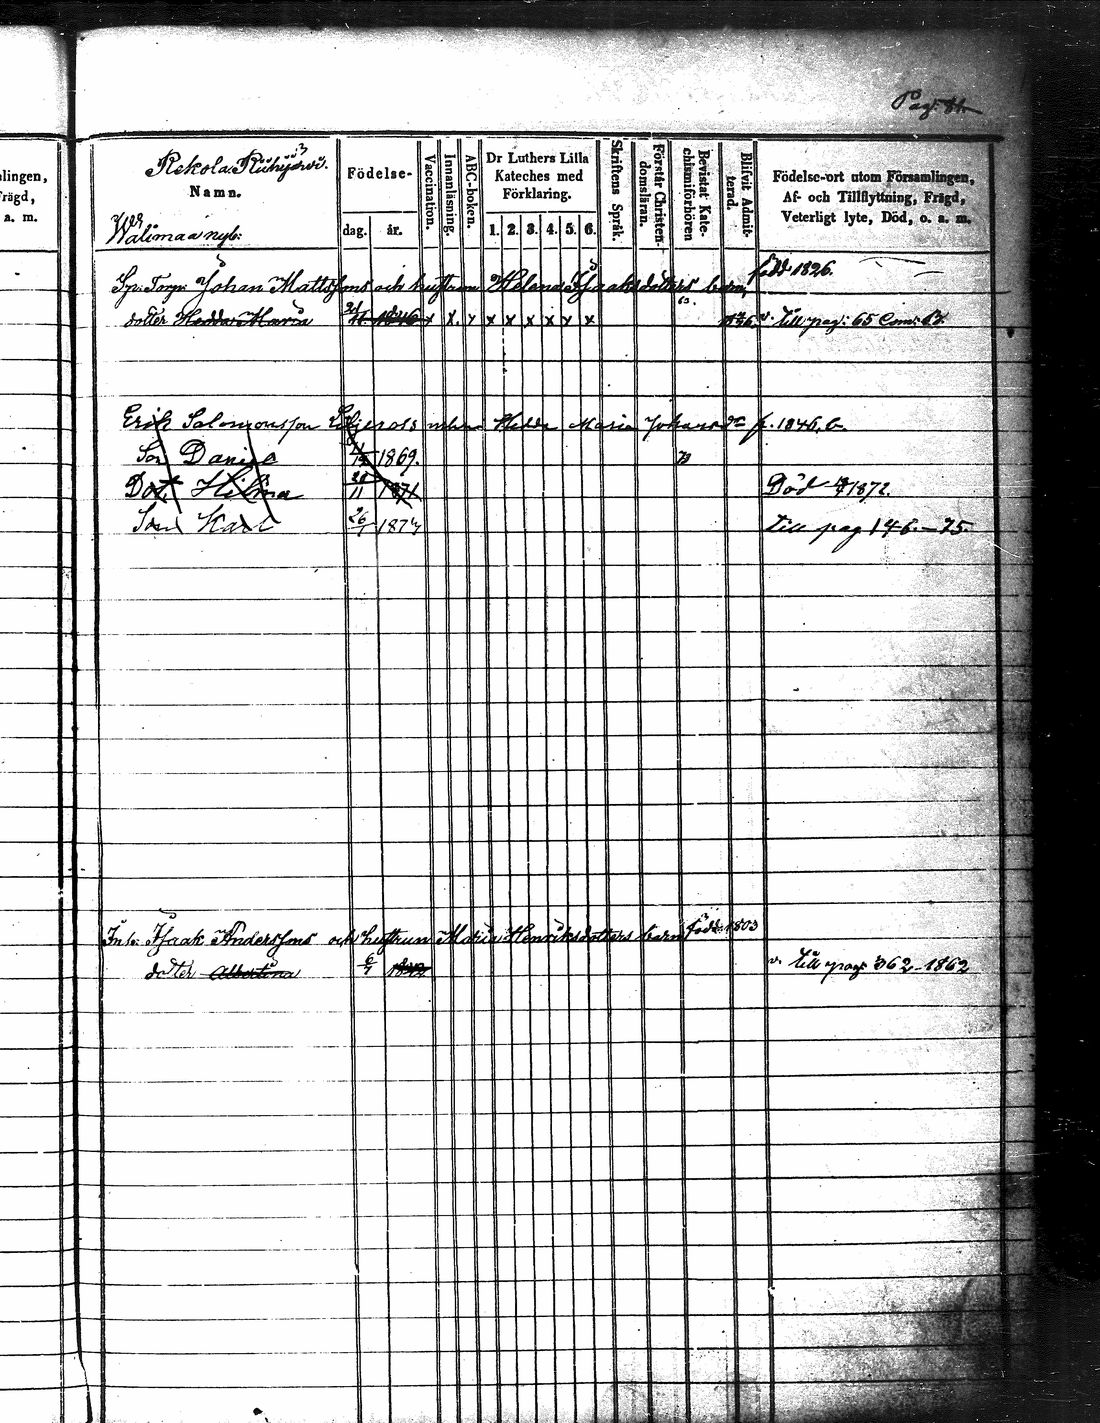 Pag: 81.
lingen,
Frägd,
a. m.
Rekola. Riihijärvi.
Namn.
Walimaa nyb:
Födelse-
dag. år.
Vaccination.
Innanläsning.
ABC-boken.
Dr Luthers Lilla
Kateches med
Förklaring.
1. 2. 3. 4. 5. 6.
Skriftens Språk.
Förstår Christen-
domsläran.
Bevistat Kate-
chismiförhören
Blifvit Admit-
terad.
Födelse-ort utom Församlingen,
Af- och Tillflyttning, Frägd,
Veterligt lyte, Död, o. a. m.
Johan Mattssons och hustrun Helena Isaaksdotters barn, född 1826.
dotter Hedda Maria 1846 x x. x x x x x x x till pag: 65 Com: B.
Erik Salomonsson Hedda Maria Johansdr f. 1846.
Son Daniel 1869. 73
Dot. Hilma 28/11 1871 Död 1872.
Son Karl 26/1 187 till pag 146.-75.
Inh: Isaak Anderssons och hustrun Maria Henriksdotters barn född 1803
dotter Albertina 6/7 till pag: 362-1862